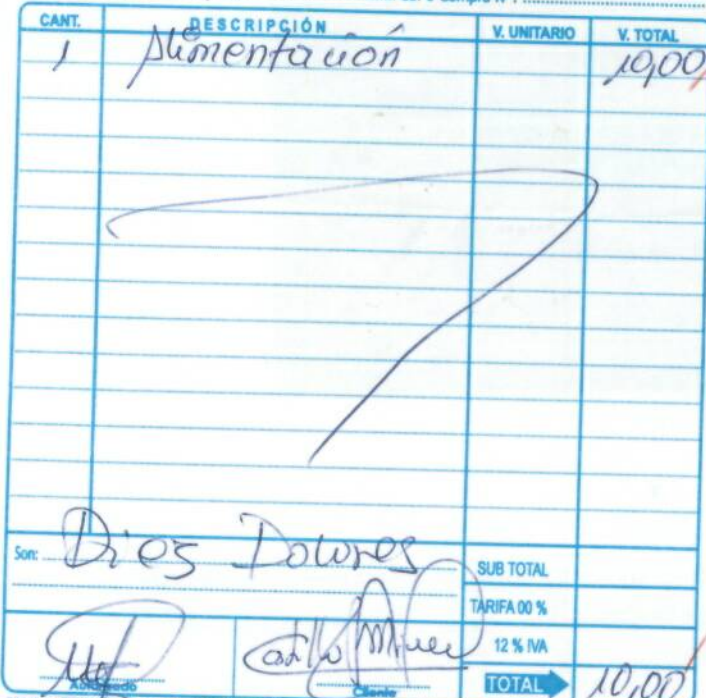 CANT. DESCRIPCIÓN V. UNITARIO V. TOTAL
1 Alimentación 10,00
Son: Dies Dolores
SUB TOTAL
TARIFA 00 %
12 % IVA
Autorizado Cliente TOTAL 10,00